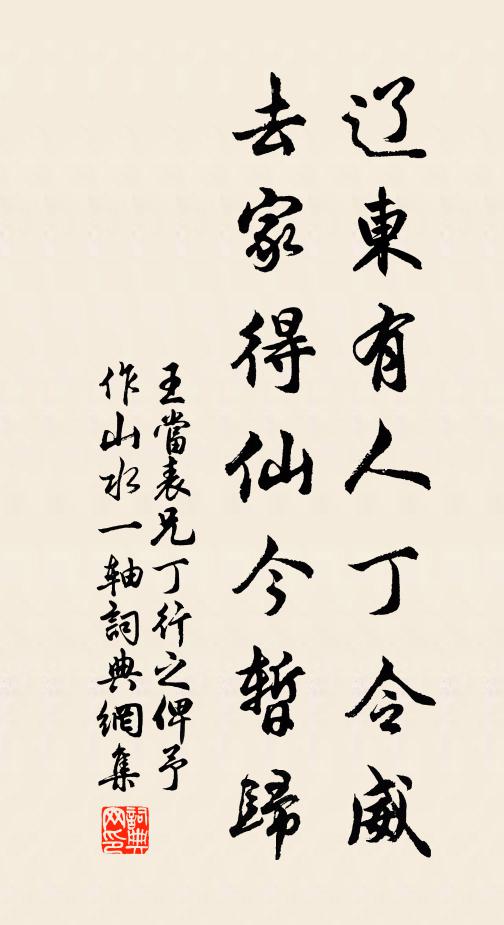 辽東有人丁令威
去家得仙今暫歸
王當表兄丁行之俾予
作山水一轴詞典網集
詞典网印